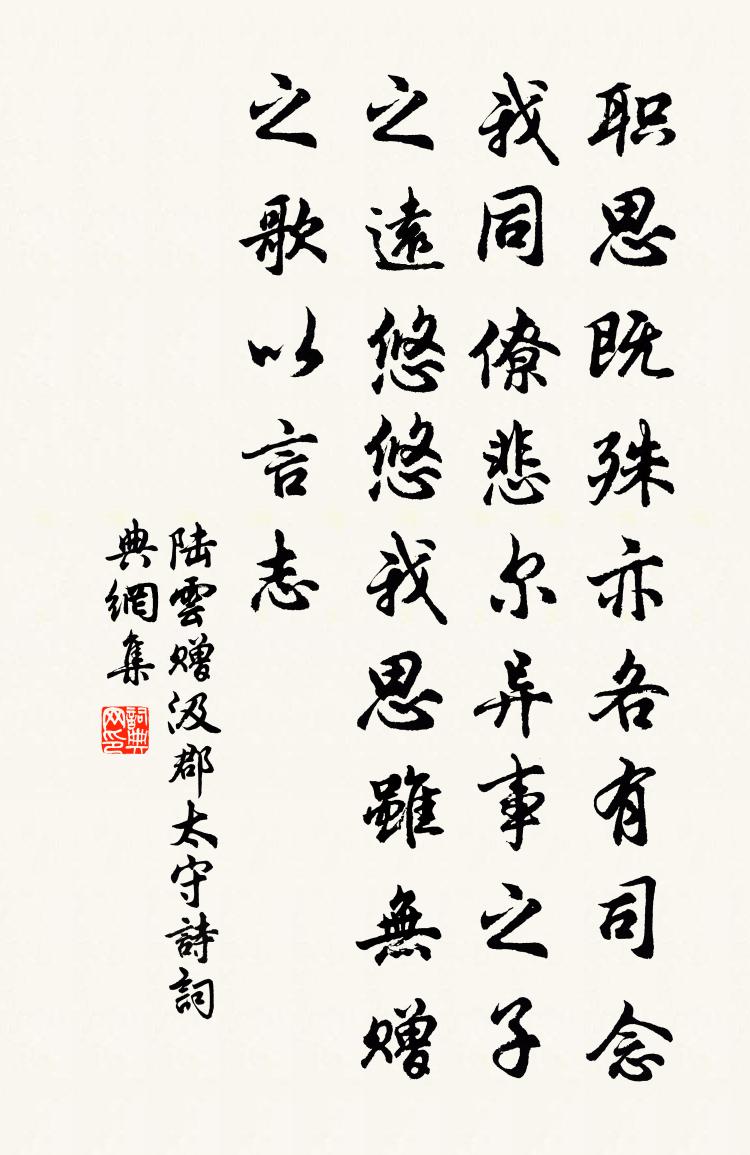 职思既殊亦各有司念
我同僚悲尔异事之子
之遠悠悠我思雖無赠
之歌以言志
陆雲赠汲郡太守詩詞
典網集
詞典
网印